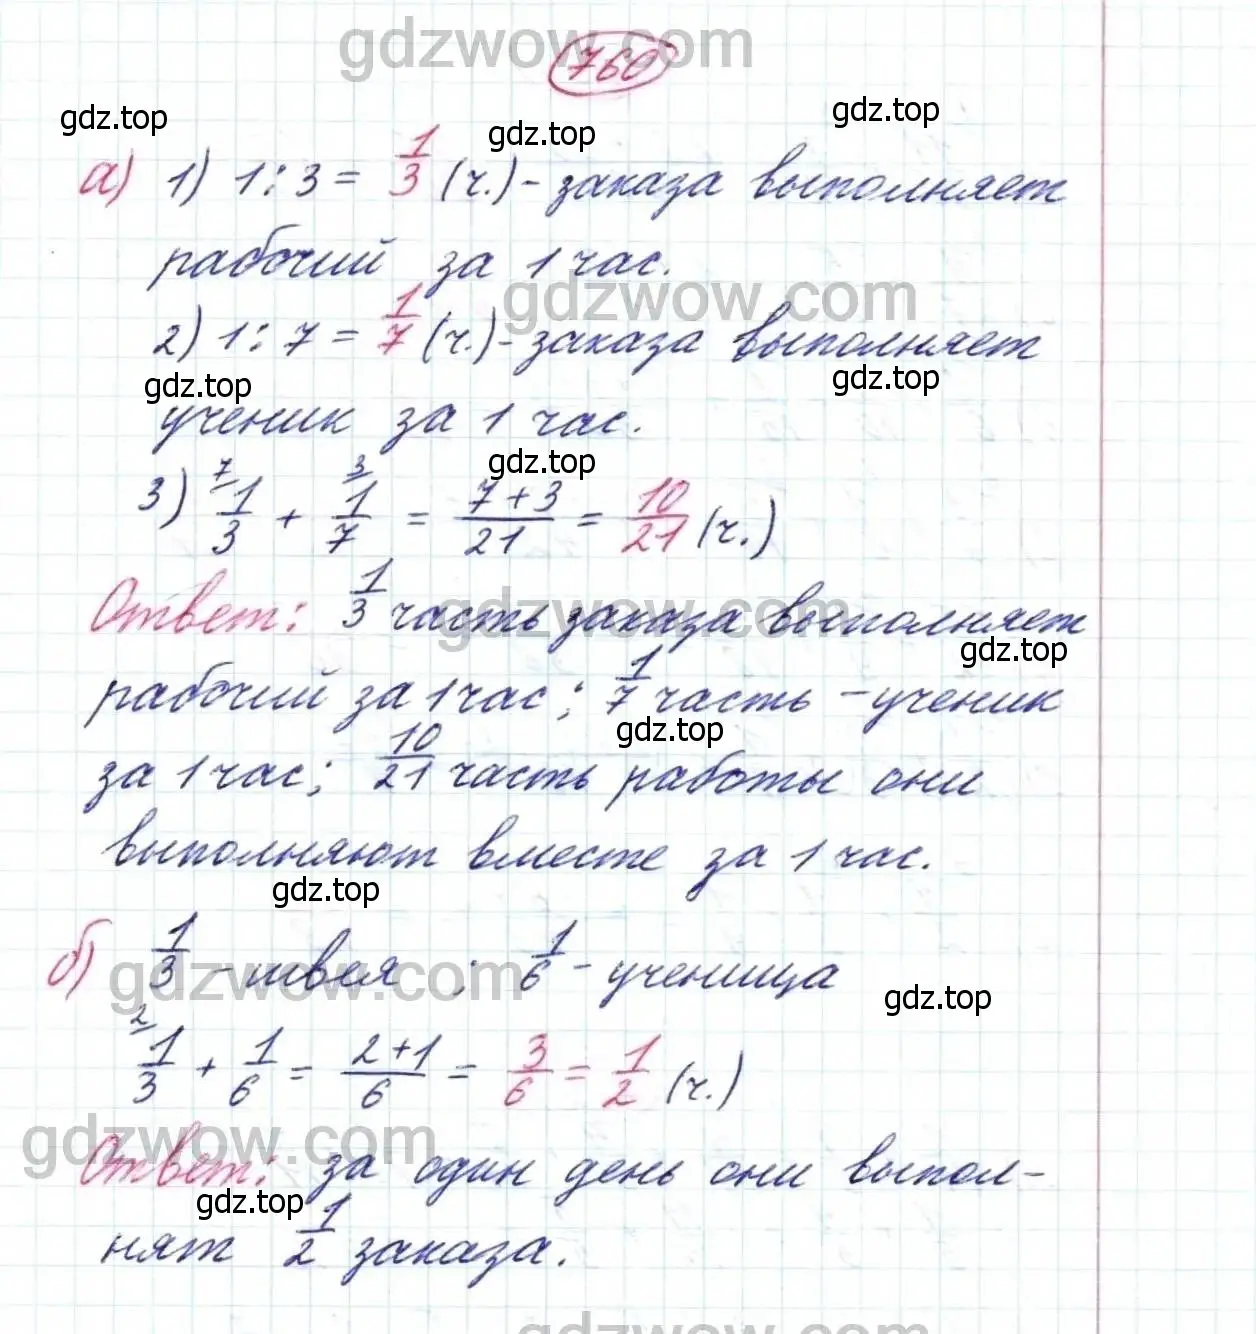 gdzwow.com
760
gdz.top gdz.top gdz.top
а) 1) 1 : 3 = 1/3 (ч.) - заказа выполняет
рабочий за 1 час.
gdzwow.com
2) 1 : 7 = 1/7 (ч.) - заказа выполняет
gdz.top gdz.top
ученик за 1 час.
gdz.top
3) ⁷1/3 + ³1/7 = 7+3/21 = 10/21 (ч.)
gdzwow.com
Ответ: 1/3 часть заказа выполняет
gdz.top
рабочий за 1 час; 1/7 часть - ученик
gdz.top
за 1 час; 10/21 часть работы они
выполняют вместе за 1 час.
gdz.top
gdzwow.com
б) 1/3 - швея ; 1/6 - ученица
gdz.top
²1/3 + 1/6 = 2+1/6 = 3/6 = 1/2 (ч.)
gdzwow.com
Ответ: за один день они выпол-
gdz.top
нят 1/2 заказа.
gdzwow.com